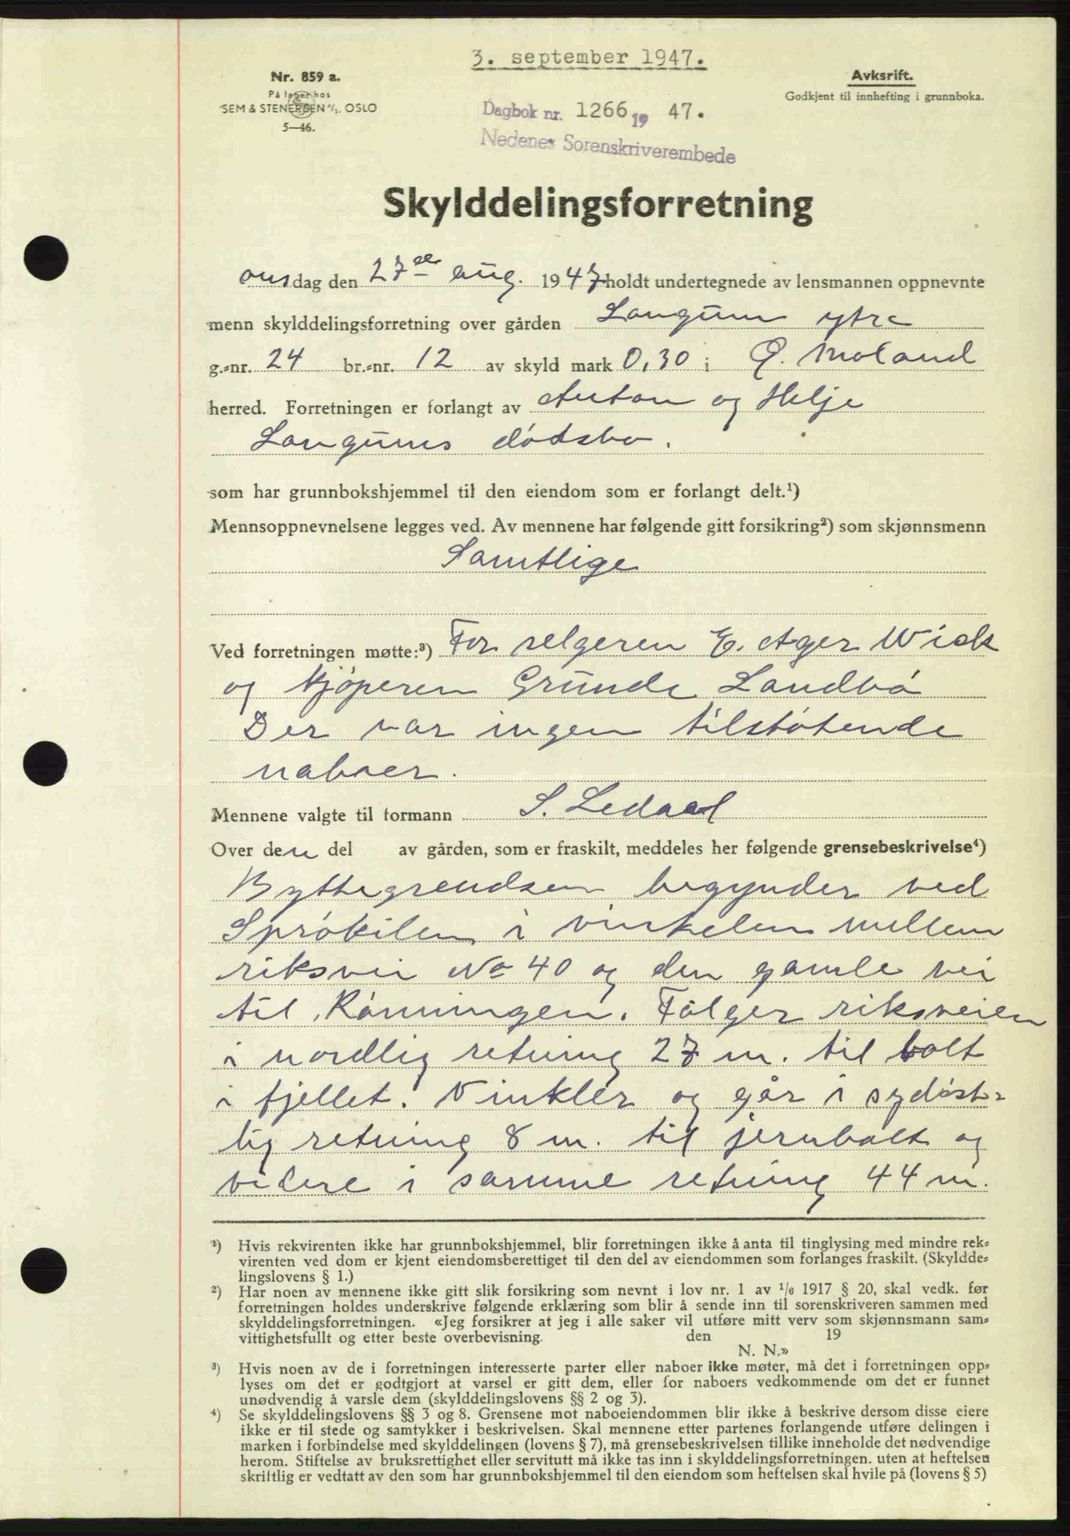 3. september 1947.
Nr. 859 a.
På lager hos
SEM & STENERSEN A/S. OSLO
5—46.
Avksrift.
Godkjent til innhefting i grunnboka.
Dagbok nr. 1266 19 47.
Nedenes Sorenskriverembede
Skylddelingsforretning
onsdag den 27de aug. 1947 holdt undertegnede av lensmannen oppnevnte
menn skylddelingsforretning over gården Langum ytre
g.-nr. 24 br.-nr. 12 av skyld mark 0,30 i Ø. Moland
herred. Forretningen er forlangt av Anton og Helje
Langums dødsbo.
som har grunnbokshjemmel til den eiendom som er forlangt delt.¹)
Mennsoppnevnelsene legges ved. Av mennene har følgende gitt forsikring²) som skjønnsmenn
Samtlige
Ved forretningen møtte:³) For selgeren E. Ager Wick
og kjøperen Grunde Landbø
Der var ingen tilstøtende
naboer.
Mennene valgte til formann S. Ledaal
Over den del av gården, som er fraskilt, meddeles her følgende grensebeskrivelse⁴)
Byttegrendsen begynder ved
Sprøkilen i vinkelen mellem
riksvei No 40 og den gamle vei
til Rønningen. Følger riksveien
i nordlig retning 27 m. til bolt
i fjellet. Vinkler og går i sydøst-
lig retning 8 m. til jernbolt og
videre i samme retning 44 m.
¹) Hvis rekvirenten ikke har grunnbokshjemmel, blir forretningen ikke å anta til tinglysing med mindre rek-
virenten ved dom er kjent eiendomsberettiget til den del av eiendommen som forlanges fraskilt. (Skyldde-
lingslovens § 1.)
²) Har noen av mennene ikke gitt slik forsikring som nevnt i lov nr. 1 av 1/6 1917 § 20, skal vedk. før
forretningen holdes underskrive følgende erklæring som blir å sende inn til sorenskriveren sammen med
skylddelingsforretningen. «Jeg forsikrer at jeg i alle saker vil utføre mitt verv som skjønnsmann sam-
vittighetsfullt og etter beste overbevisning. den 19
N. N.»
³) Hvis noen av de i forretningen interesserte parter eller naboer ikke møter, må det i forretningen opp-
lyses om det er godtgjort at varsel er gitt dem, eller for naboers vedkommende om det er funnet
unødvendig å varsle dem (skylddelingslovens §§ 2 og 3).
⁴) Se skylddelingslovens §§ 3 og 8. Grensene mot naboeiendommen blir ikke å beskrive dersom disse eiere
ikke er til stede og samtykker i beskrivelsen. Skal mennene etter partenes forlangende utføre delingen i
marken i forbindelse med skylddelingen (lovens § 7), må grensebeskrivelsen tillike inneholde det nødvendige
herom. Stiftelse av bruksrettighet eller servitutt må ikke tas inn i skylddelingsforretningen. uten at heftelsen
skriftlig er vedtatt av den som har grunnbokshjemmel til den eiendom som heftelsen skal hvile på (lovens § 5)